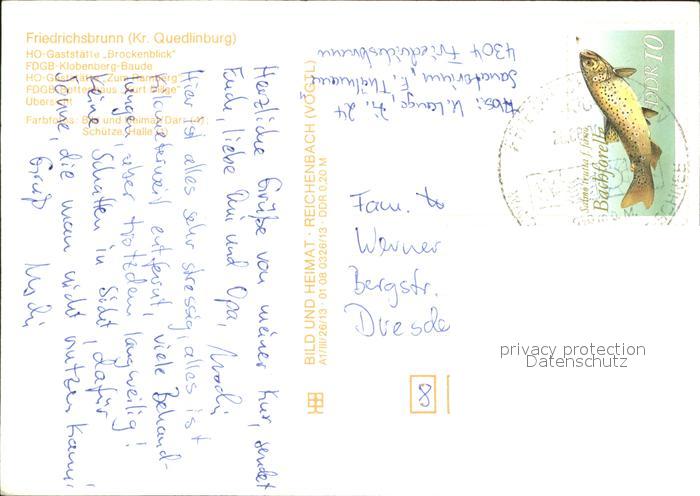 Friedrichsbrunn (Kr. Quedlinburg)
HO-Gaststätte „Brockenblick"
FDGB-Klobenberg-Baude
HO-Gaststätte "Zum Ramberg"
Übersicht
Farbfotos: Bild und Heimat (Darr
Schütze, Halle
Herzliche Grüße von meiner Kur, sendet
Euch, liebe Omi und Opa,
Hier ist alles sehr stressig, alles ist
kilometerweit entfernt, viele Behand-
lungen, aber trotzdem langweilig!
Keine Schatten in Sicht, dafür
die man nicht nutzen kann!
Gruß
BILD UND HEIMAT · REICHENBACH (VOGTL)
A1/III/26/13 · 01 08 0326/13 · DDR 0,20 M
Abs: U. Lange, Zi. 24
Sanatorium „E. Thälmann
4304 Friedrichsbrunn
Fam.
Werner
Bergstr.
Dresde
8
DDR 10
Salmo trutta f. fario
Bachforelle
privacy protection
Datenschutz